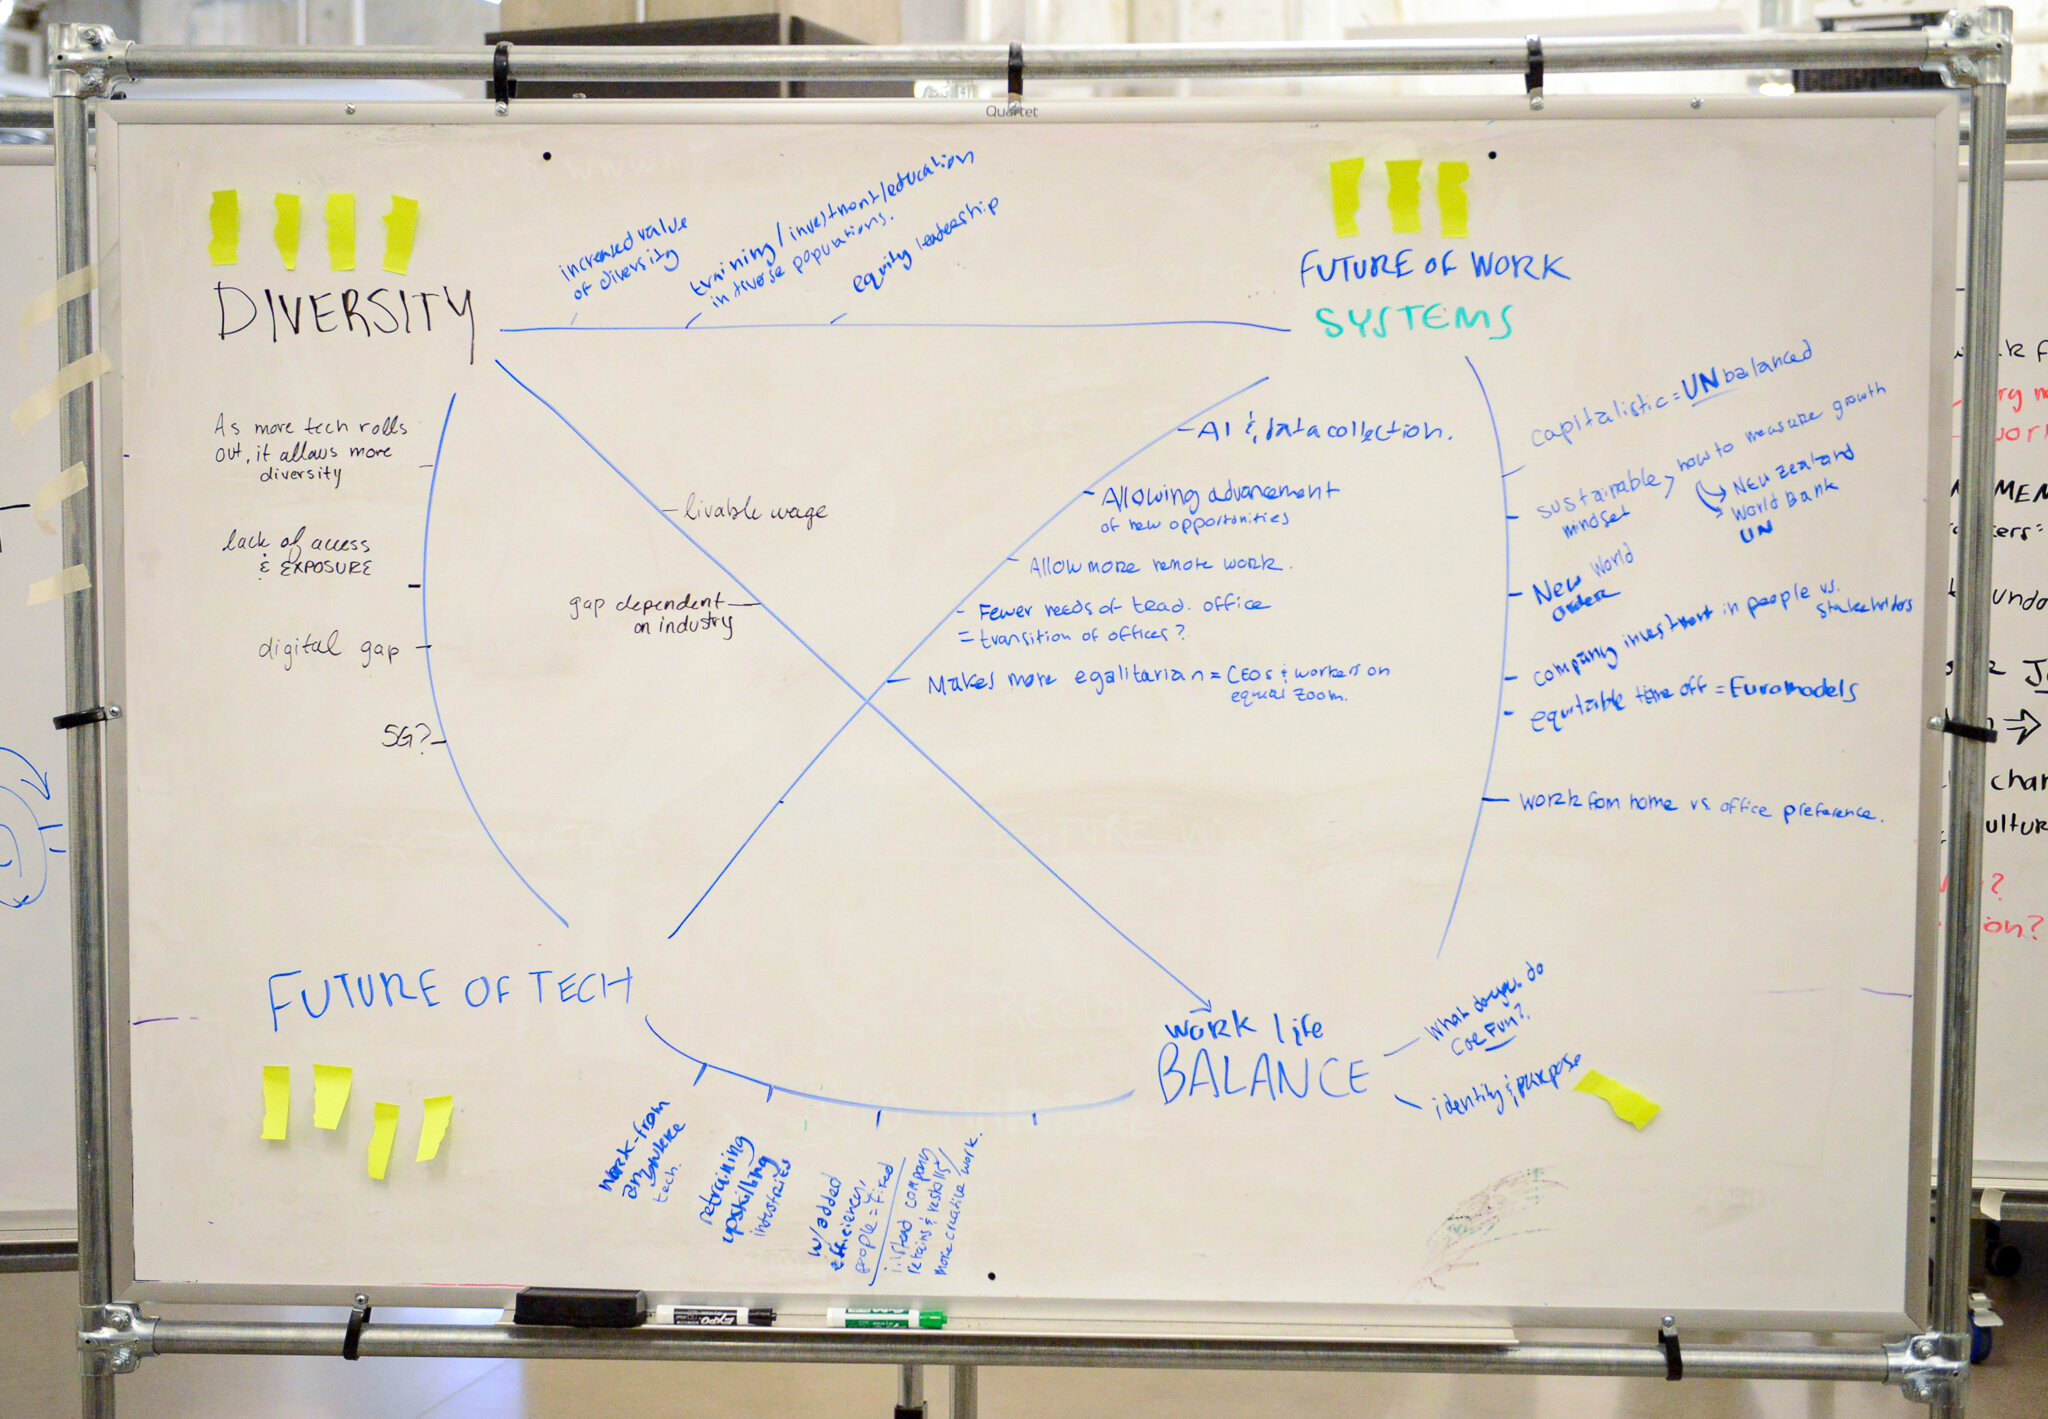 Quartet
increased value
of diversity
training/investment/education
in diverse populations.
equity leadership
DIVERSITY
FUTURE OF WORK
SYSTEMS
As more tech rolls
out, it allows more
diversity
lack of access
& EXPOSURE
digital gap
5G?
livable wage
gap dependent
on industry
AI & data collection.
Allowing advancement
of new opportunities
Allow more remote work.
Fewer needs of trad. office
= transition of offices?
Makes more egalitarian = CEOs & workers on
equal zoom.
capitalistic = UNbalanced
sustainable > how to measure growth
mindset
New Zealand
World Bank
UN
New World
Order
company investment in people vs.
stakeholders
equitable time off = Euromodels
work from home vs. office preference.
FUTURE OF TECH
work life
BALANCE
What do do
Fun?
identity & purpose
work-from
anywhere
tech.
retraining
upskilling
industries
w/added
efficiency,
people = fired
instead company
retains & reskills/
more creative work.
EXPO